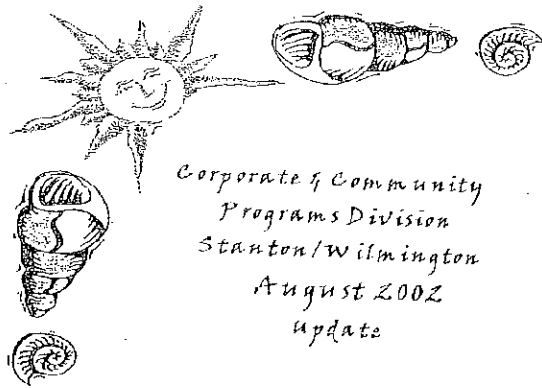 Corporate & Community
Programs Division
Stanton/Wilmington
August 2002
update